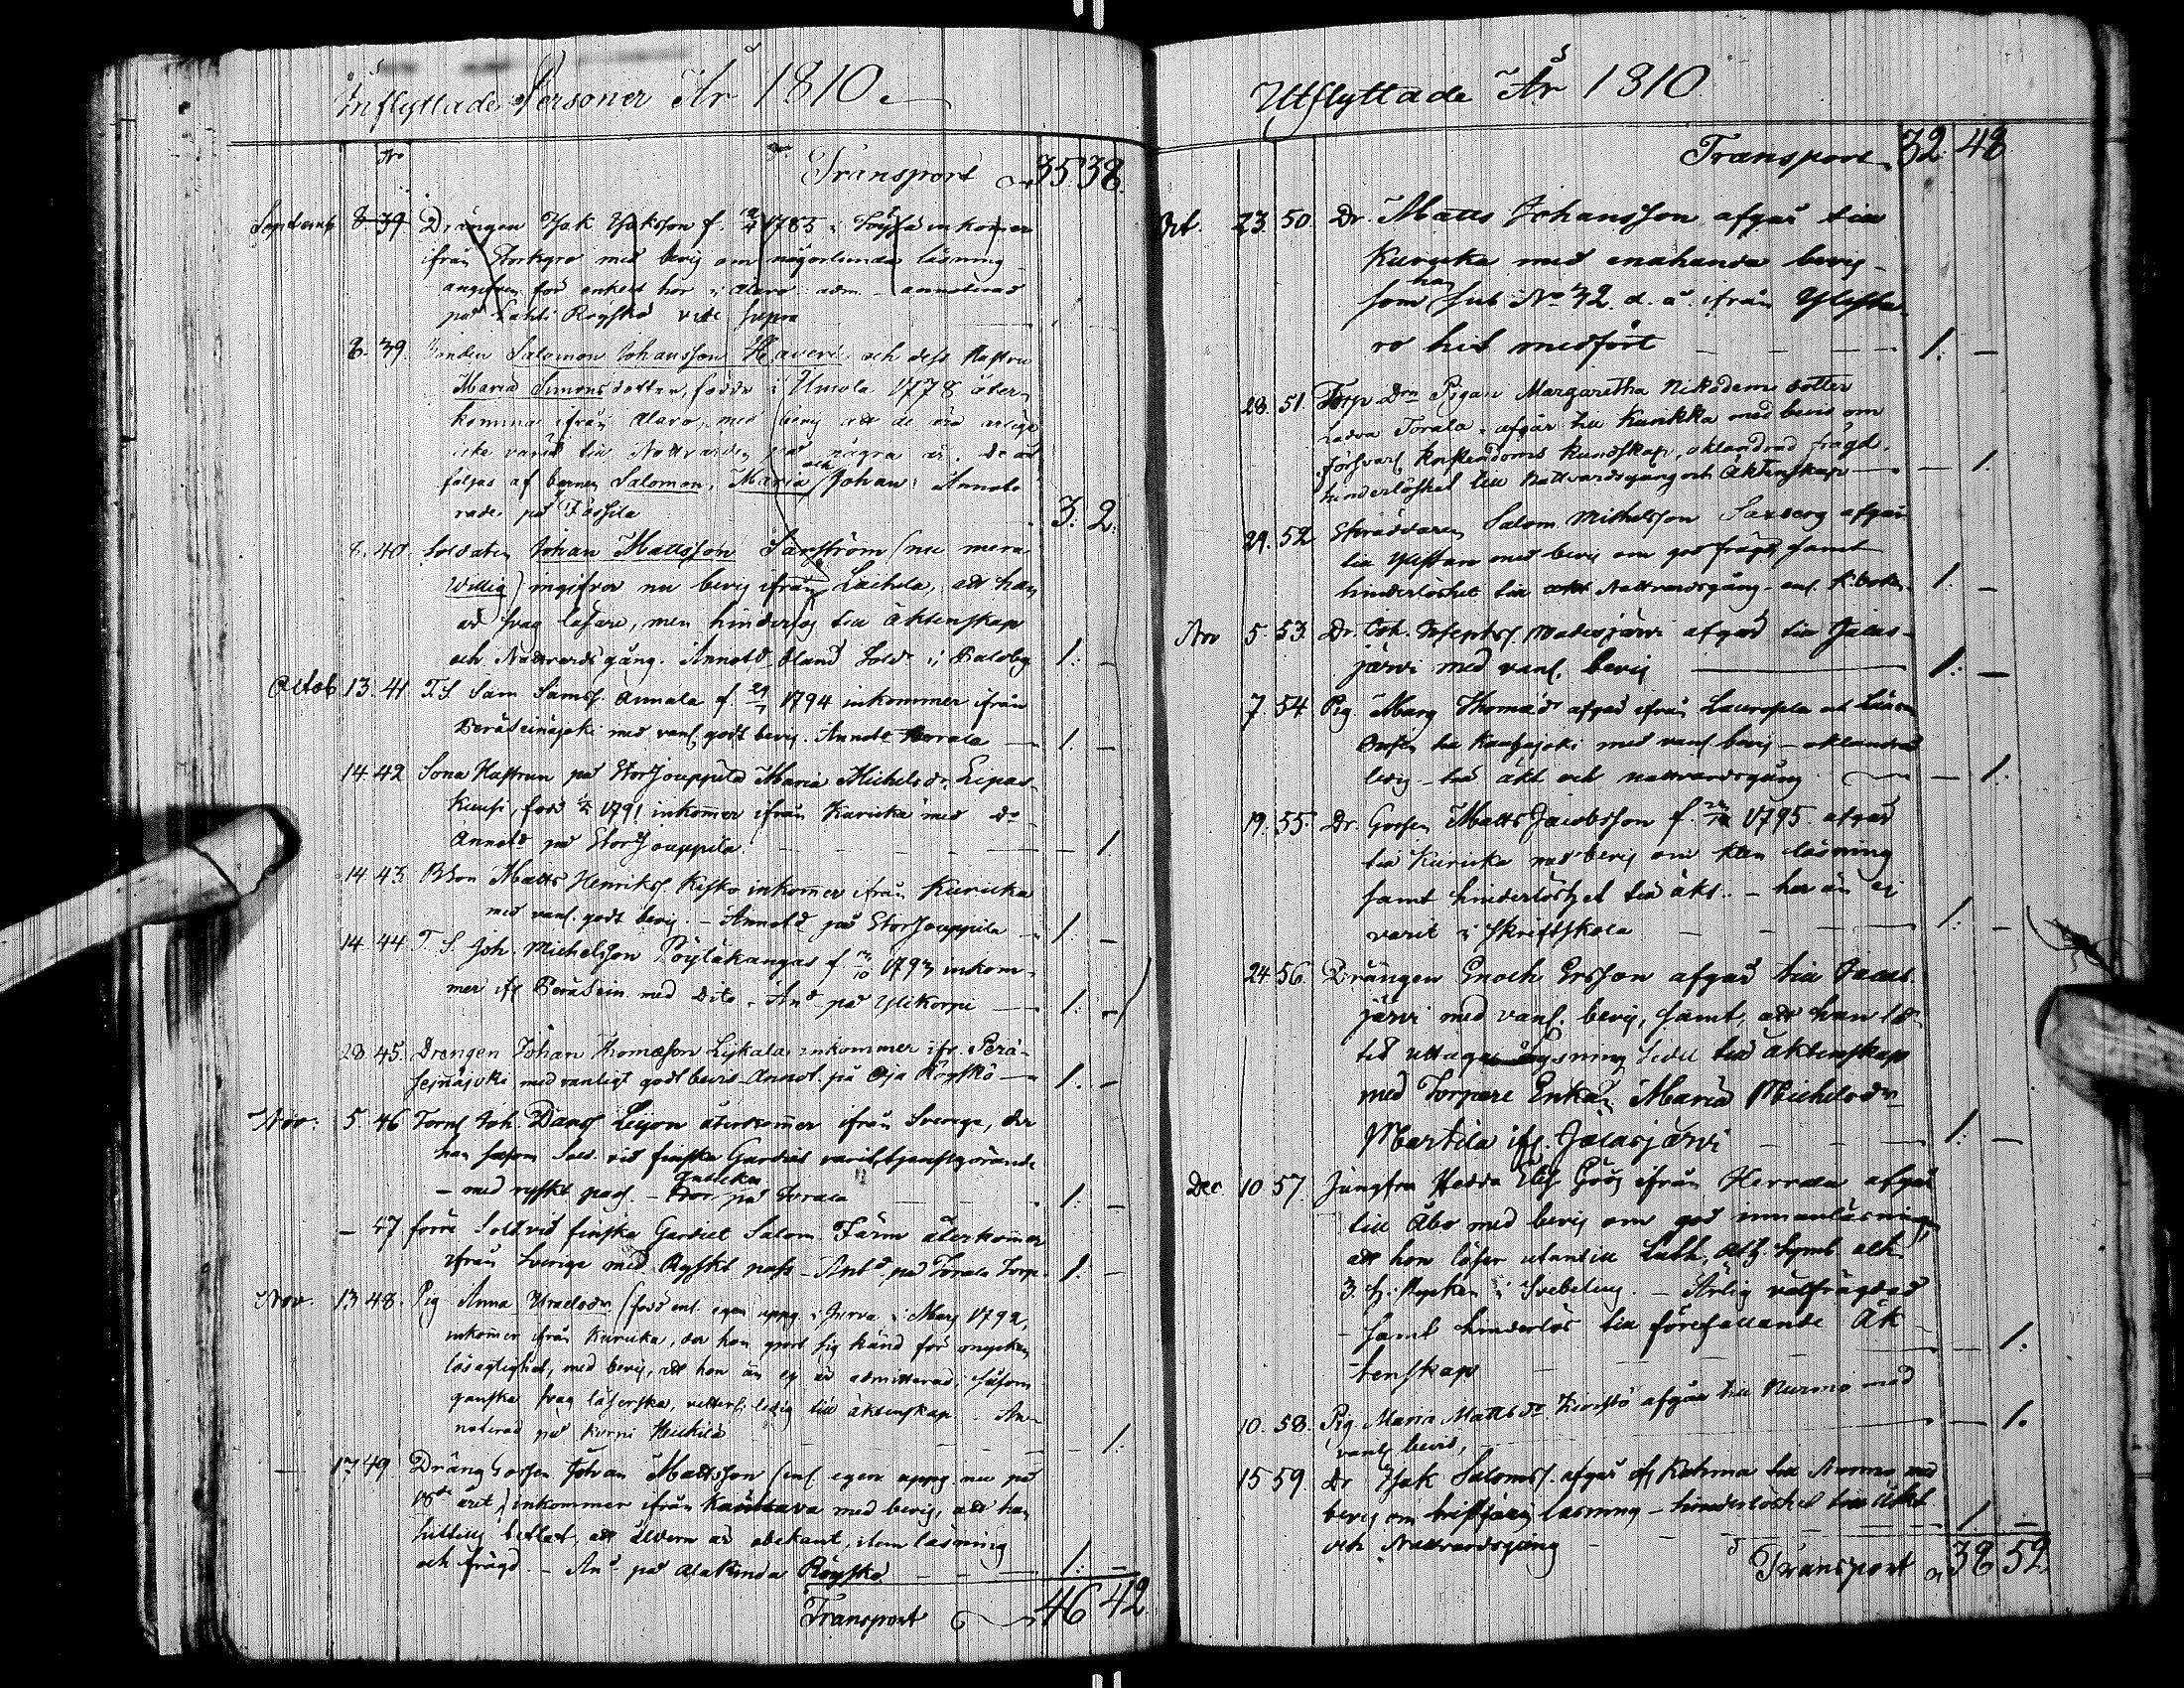 Inflyttade Personer År 1810
No
Transport 35. 38.
Septemb. 8. 39 Drängen Isak Isaksson f. 1785 i inkommer
ifrån Storkyro med bevis om någorlunda läsning
angifven för enkelt hor i Alavo adm. annoterad
på Lahti Röyskö vide supra
8. 39. Bonden Salomon Johansson Haveri och dess Hustru
Maria Simonsdotter, födde i Umola 1778 åter-
komma ifrån Alavo, med bevis att de äro ärlige
icke varit till Nattvarden på några år. De åt
följas af barnen Salomon, Maria och Johan. Annote
rade på Fossila 3. 2.
8. 40. Soldaten Johan Mattsson Sanström (nu mera
Willig) ingifver nu bevis ifrån Laihela, att han
är svag läsare, men hinderlös till äktenskap
och Nattvardsgång. Annotd bland Sold. i Palobg 1. –
Octob. 13. 41 T.S. Sam. Samss. Annala f. 1794 inkommer ifrån
Peräseinäjoki med vanl. godt bevis. Annote Torala 1. –
14. 42 Sona Hustrun på Storjouppila Maria Michelsdr Lipas-
kuusi, född 1791 inkommer ifrån Kuricka med do
Annotd på Storjouppila – 1.
14. 43. BSon Matts Henrikss. Kesko inkommer ifrån Kuricka
med vanl. godt bevis. – Annotd på Storjouppila 1. –
14. 44 T.S. Joh. Michelsson Pöytäkangas f. 1793 inkom-
mer ifr Peräsein. med Dito – And på Ylikorpi 1. –
28. 45. Drängen Johan Thomasson Lykala inkommer ifr. Perä-
seinäjoki med vanligt godt bevis Annot. på Oja Röyskö 1. –
Nov: 5. 46 Joh. Danss Leijon återkommer ifrån Sverige, der
han såsom Sold. vid finska Gardiet varit tjenstgörande
– med ryskt pass. – på Torala 1. –
– 47 förre Sold vid finska Gardiet Salom. Färm återkommer
ifrån Sverige med Ryskt pass – Antd på Torala Torp. 1. –
Nov. 13 48. Pig. Anna Israelsdr (född enl. egen uppg. i Jurva i Mars 1792,
inkommer ifrån Kuricka, der hon gjort sig känd för mycken
lösagtighet, med bevis, att hon än ej är admitterad, såsom
ganska svag läserska, vetterl. ledig till äktenskap. An-
noterad på Korpi Heickilä – 1.
– 17 49. Dräng Gossen Johan Mattsson (enl. egen uppg. nu på
18de året) inkommer ifrån Kauhava med bevis, att han
hittills betlat, att åldern är obekant, item läsning
och frägd. – And på Alakinda Röyskö 1. –
Transport 46 42
Utflyttade År 1810
Transport 32. 48
Oct. 23. 50. Dr. Matts Johansson afgår till
Kuricka med enahanda bevis
som han sub No 32 d. å. ifrån Ylista-
ro hit medfört 1. –
28. 51. Torp Drn Pigan Margaretha Nikodemi dotter
Ladva Torala, afgår till Kurikka med bevis om
försvarl kristendoms kundskap, oklandrad frägd,
hinderlöshet till Nattvardsgång och Äktenskap – 1.
29. 52 Skräddaren Salom. Michelsson Saxberg afgår
till Ylistaro med bevis om god frägd samt
hinderlöshet till Nattvardsgång enl. K. boken 1. –
Nov 5. 53. Dr. Joh. Josephss Madesjärvi afgår till Jalas-
järvi med vanl. bevis 1. –
7. 54. Pig. Marg. Thomædr afgår ifrån
till Kauhajoki med vanl bevis – oklandrad
ledig till äkt och nattvardsgång – 1.
19. 55. Dr. Gossen Matts Jacobsson f. 1795 afgår
till Kuricka med bevis om klen läsning
samt hinderlöshet till äkt. – har än ej
varit i Skriftskola 1. –
24. 56. Drängen Enoch Ersson afgår till Jalas
järvi med vanl. bevis, samt, att han lå
tit uttaga lysning sedel till äktenskap
med Torpare Enkan Maria Michelsdr
Martila ifr. Jalasjärvi 1. –
Dec. 10 57. Jungfru Hedda Elis Göös ifrån Herrala afgår
till Åbo med bevis om god innanläsning,
att hon läser utantill Luth. Ath. Symb. och
3. H. Stycken i Svebelius. – Ärlig välfrägdad
samt hinderlös till förefallande Äk
tenskap – 1.
10. 58. Pig. Maria Mattsdr Kivistö afgår till Nurmo med
vanl bevis, – 1.
15 59. Dr Isak Salomss. afgår ifr Kuhna till Nurmo med
bevis om läsning – hinderlöshet till äkt.
och Nattvardsgång 1 –
Transport 38 52